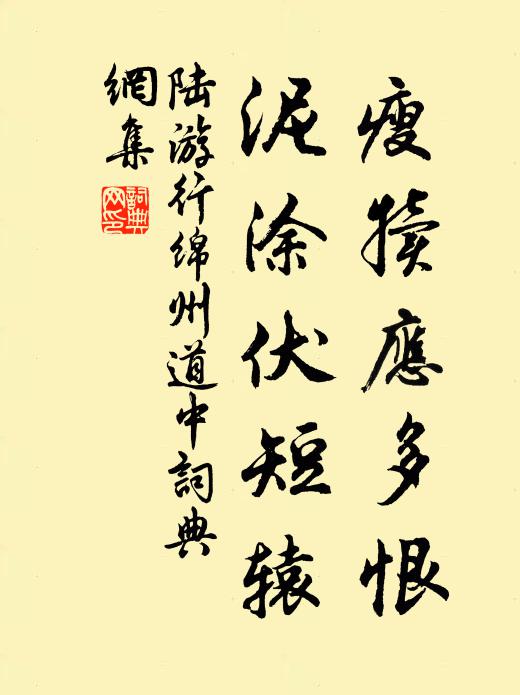 瘦犊應多恨
泥涂伏短辕
陆游行绵州道中詞典
網集
詞典
网印